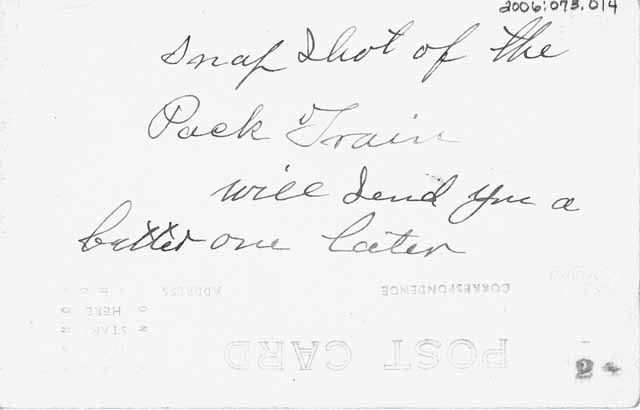 2006:073.014
Snap Shot of the
Pack Train
will send you a
better one later
CORRESPONDENCE
ADDRESS
HERE
POST CARD
2